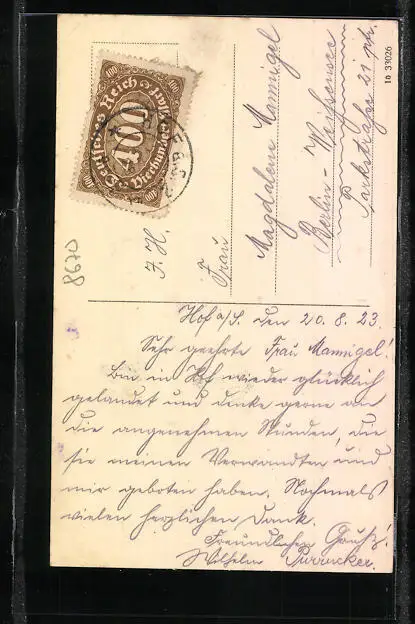 16 33026
Deutsches Reich
400
400
400
400
400
Vierhundert Mark
HOF
8670
F. H.
Frau
Magdalene Mannigel
Berlin-Weißensee
Parkstraße 21 ptr.
Hof a/S. den 20. 8. 23.
Sehr geehrte Frau Mannigel!
Bin in Hof wieder glücklich
gelandet und denke gerne an
die angenehmen Stunden, die
sie meinen Verwandten und
mir geboten haben. Nochmals
vielen herzlichen Dank.
Freundlichen Gruß!
Wilhelm Purrucker.